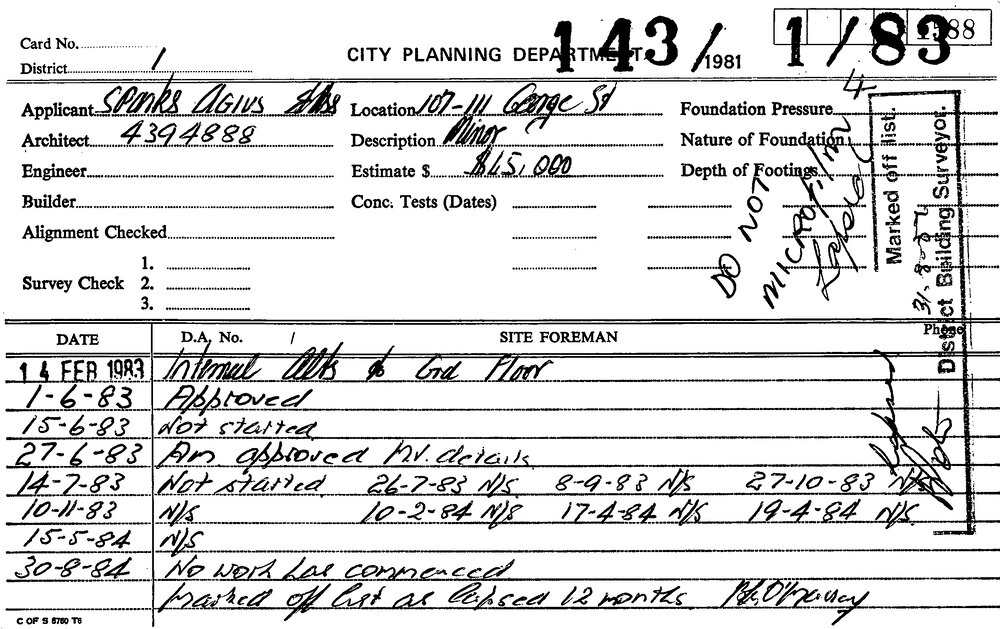 Card No.
District 1
CITY PLANNING DEPARTMENT
143/1981 1/83
1588
Applicant SPanks AGIUS
Architect 4394888
Engineer
Builder
Alignment Checked
Survey Check 1.
2.
3.
Location 107-111 George St
Description Minor
Estimate $ $65,000
Conc. Tests (Dates)
Foundation Pressure
Nature of Foundation
Depth of Footings
DO NOT
MICROFILM
Lapsed
4
Marked off list.
District Building Surveyor.
Phone
DATE D.A. No. 1 SITE FOREMAN
14 FEB 1983 Internal Alts to Grd Floor
1-6-83 Approved
15-6-83 Not started
27-6-83 Am. approved M.V. details
14-7-83 Not started 26-7-83 N/S 8-9-83 N/S 27-10-83 N/S
10-11-83 N/S 10-2-84 N/S 17-4-84 N/S 19-4-84 N/S.
15-5-84 N/S
30-8-84 No work has commenced
marked off list as lapsed 12 months
C OF S 6760 T6